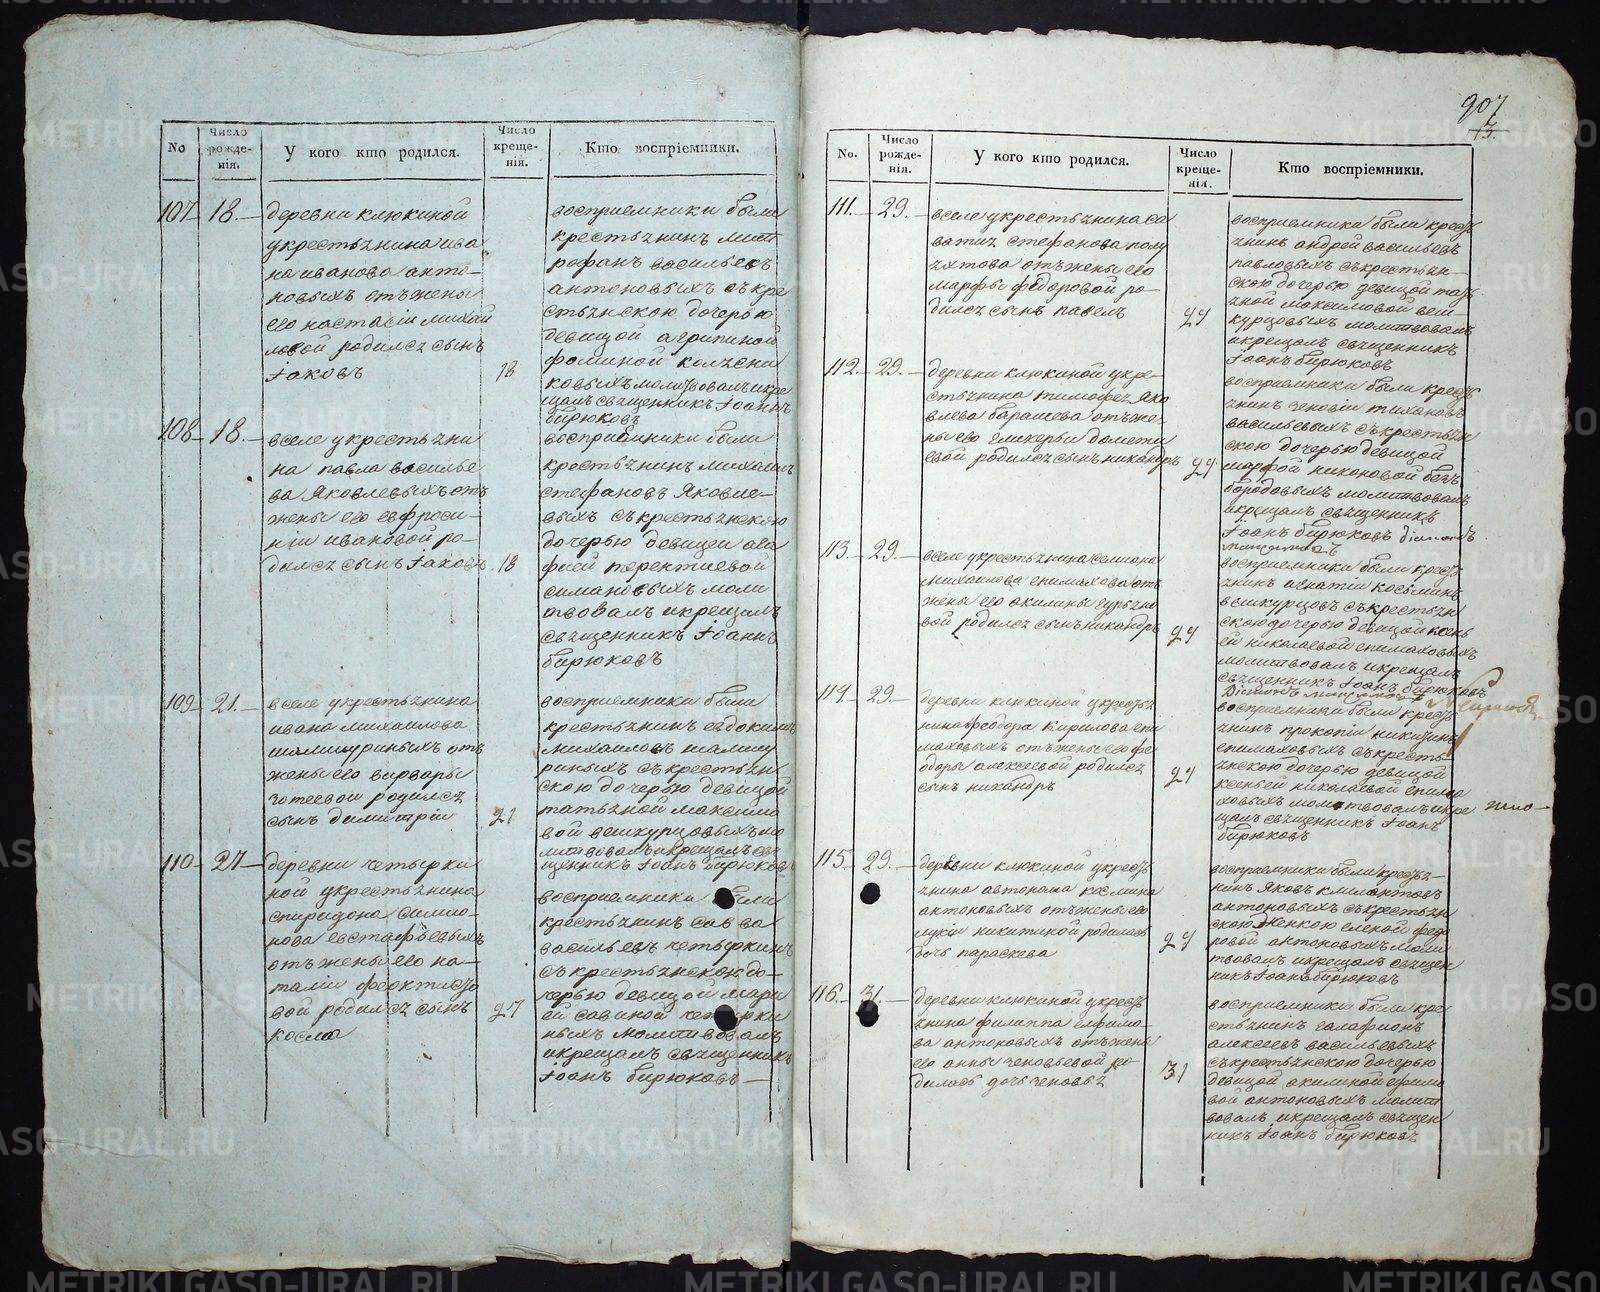 No
Число рожде- нія.
У кого кто родился.
Число креще- нія.
Кто воспріемники.
107 18. деревни клюкиной
укрестьянина ива
на иванова анто-
новыхъ отъжены
его настасіи михай
ловой родился сынъ
Іаковъ 18
восприемники были
крестьянинъ мит
рофанъ васильевъ
антоновыхъ съкре
стьянскою дочерью
девицой агрипиной
фоминой
ковыхъ молитвовалъ икре
щалъ священникъ Іоаннъ
бирюковъ
108 18. вселе укрестьяни
на павла василье
ва Яковлевыхъ отъ
жены его евфроси-
ніи ивановой ро-
дился сынъ Іаковъ 18
восприемники были
крестьянинъ михаилъ
стефановъ Яковле-
выхъ съкрестьянскою
дочерью девицей ага
фией
симановыхъ моли
твовалъ икрещалъ
священникъ Іоаннъ
бирюковъ
109 21. вселе укрестьянина
ивана михаилова
шалашуриныхъ отъ
жены его варвары
родился
сынъ димитрій 21
восприемники были
крестьянинъ евдокимъ
михаиловъ шалашу
риныхъ съкрестьян
скою дочерью девицой
татьяной максимо
вой вешкурцовыхъ мо
литвовалъ икрещалъ свя
щенникъ Іоанъ бирюковъ
110 27 деревни четырки
ной укрестьянина
спиридона симио-
нова евстафьевыхъ
отъ жены его на-
таліи феоктисто
вой родился сынъ
косма 27
восприемники были
крестьянинъ савва
васильевъ четыркинъ
съкрестьянскою до-
черью девицой мари
ей савиной четырки
ныхъ молитвовалъ
икрещалъ священникъ
Іоанъ бирюковъ
907
13.
No.
Число рожде- нія.
У кого кто родился.
Число креще- нія.
Кто воспріемники.
111. 29. вселе укрестьянина са
ватия стефанова полу
яхтова отъжены его
марфы федоровой ро-
дился сынъ павелъ 29
восприемники были кресть
янинъ андрей васильевъ
павловыхъ съкрестьян-
скою дочерью девицой тать
яной максимовой веш-
курцовыхъ молитвовалъ
икрещалъ священникъ
Іоанъ бирюковъ
112. 29. деревни клюкиной укре-
стьянина тимофея Яко
влева барашева отъже-
ны его гликерьи
евой родился сынъ никандръ 29
восприемники были кресть
янинъ зеновіи тихановъ
васильевыхъ съкрестьян
скою дочерью девицой
марфой никоновой без
бородовыхъ молитвовалъ
икрещалъ священникъ
Іоанъ бирюковъ
113. 29. вселе укрестьянина симиона
михаилова епимахова отъ
жены его акилины гурьяно
вой родился сынъ никандръ 29
восприемники были кресть
янинъ игнатіи косьминъ
вешкурцовъ съкрестьян
скою дочерью девицой ксень
ей николаевой епимаховыхъ
молитвовалъ икрещалъ
священникъ Іоанъ бирюковъ
114 29. деревни клюкиной укресть
янина феодора кирилова епи
маховыхъ отъжены его фе
одоры алексеевой родился
сынъ никандръ 29
восприемники были кресть
янинъ прокопіи никитинъ
епимаховыхъ съкресть-
янскою дочерью девицой
ксеньей николаевой епима
ховыхъ молитвовалъ икре
щалъ священникъ Іоанъ
бирюковъ
115. 29. деревни клюкиной укресть
янина автонома космина
антоновыхъ отъжены его
лукіи никитиной родилась
дочь параскева 29
восприемники были кресть-
нинъ Яковъ
антоновыхъ съкрестьян
скою женкою еленой фео
ровой антоновыхъ моли
твовалъ икрещалъ священ
никъ Іоанъ бирюковъ
116. 31. деревни клюкиной укресть
янина филиппа ефимо-
ва антоновыхъ отъжены
его анны зеновьевой ро-
дилась дочь зеновья 31
восприемники были кре
стьянинъ
алексеевъ васильевыхъ
съкрестьянскою дочерью
девицой акилиной ефимо
вой антоновыхъ молит
вовалъ икрещалъ священ
никъ Іоанъ бирюковъ
METRIKI.GASO-URAL.RU